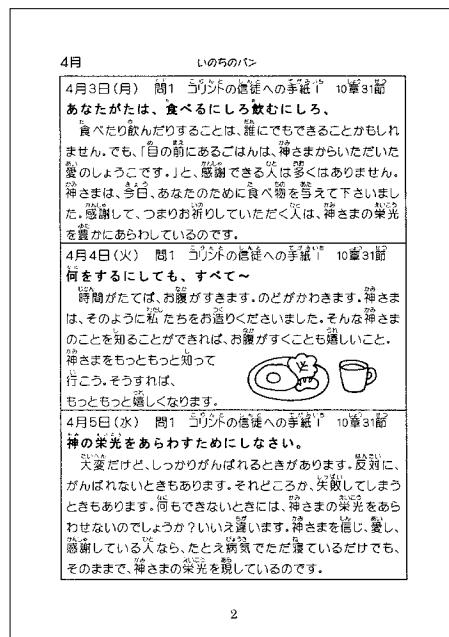 4月
いのちのパン
4月3日(月) 問1 コリントの信徒への手紙Ⅰ 10章31節
あなたがたは、食べるにしろ飲むにしろ、
食べたり飲んだりすることは、誰にでもできることかもしれ
ません。でも、「目の前にあるごはんは、神さまからいただいた
愛のしょうこです。」と、感謝できる人は多くはありません。
神さまは、今日、あなたのために食べ物を与えて下さいまし
た。感謝して、つまりお祈りしていただく人は、神さまの栄光
を豊かにあらわしているのです。
4月4日(火) 問1 コリントの信徒への手紙Ⅰ 10章31節
何をするにしても、すべて～
時間がたてば、お腹がすきます。のどがかわきます。神さま
は、そのように私たちをお造りくださいました。そんな神さま
のことを知ることができれば、お腹がすくことも嬉しいこと。
神さまをもっともっと知って
行こう。そうすれば、
もっともっと嬉しくなります。
4月5日(水) 問1 コリントの信徒への手紙Ⅰ 10章31節
神の栄光をあらわすためにしなさい。
大変だけど、しっかりがんばれるときがあります。反対に、
がんばれないときもあります。それどころか、失敗してしまう
ときもあります。何もできないときには、神さまの栄光をあら
わせないのでしょうか?いいえ違います。神さまを信じ、愛し、
感謝している人なら、たとえ病気でただ寝ているだけでも、
そのままで、神さまの栄光を現しているのです。
2